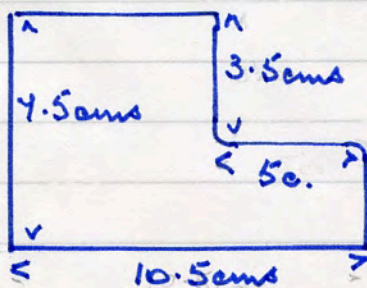 3.5cms
7.5cms
5c.
10.5cms